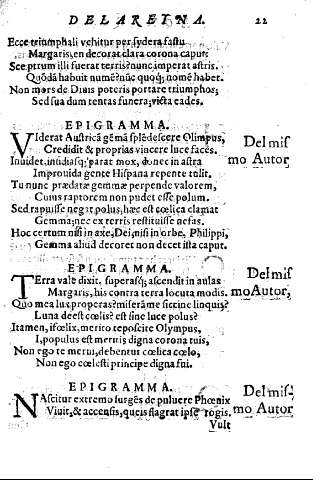 DE LA REINA. 22
Ecce triumphali vehitur per sydera fastu
Margaris, en decorat clara corona caput:
Sceptrum illi fuerat terris? nunc imperat astris.
Quõdã habuit numẽ? nũc quoq; nomẽ habet.
Non mors de Diuis poteris portare triumphos;
Sed sua dum tentas funera; victa cades.
EPIGRAMMA.
Viderat Austricã gẽmã splẽdescere Olimpus,
Credidit & proprias vincere luce faces.
Inuidet, insidiasq; parat mox, donec in astra
Improuida gente Hispana repente tolit.
Tu nunc prædatæ gemmæ perpende valorem,
Cuius raptorem non pudet esse polum.
Sed rapuisse negat polus, hæc est cœlica clamat
Gemma; nec ex terris restituisse nefas.
Hoc certum nisi in axe, Dei, nisi in orbe, Philippi,
Gemma aliud decoret non decet ista caput.
Del mis
mo Autor,
EPIGRAMMA.
Terra vale dixit, superasq; ascendit in aulas
Margaris, his contra terra locuta modis.
Quo mea lux properas? miserãme sic cine linquis?
Luna deest cœlis? est sine luce polus?
Itamen, ifœlix, merito te poscite Olympus,
I, populus est meruis digna corona tuis,
Non ego te merui, debentur cœlica cœlo,
Non ego cœlesti principe digna fui.
Del mis
mo Autor,
EPIGRAMMA.
Nascitur extremo surgẽs de puluere Phœnix
Viuit, & accensis, queis flagrat ipse rogis.
Del mis-
mo Autor
Vult